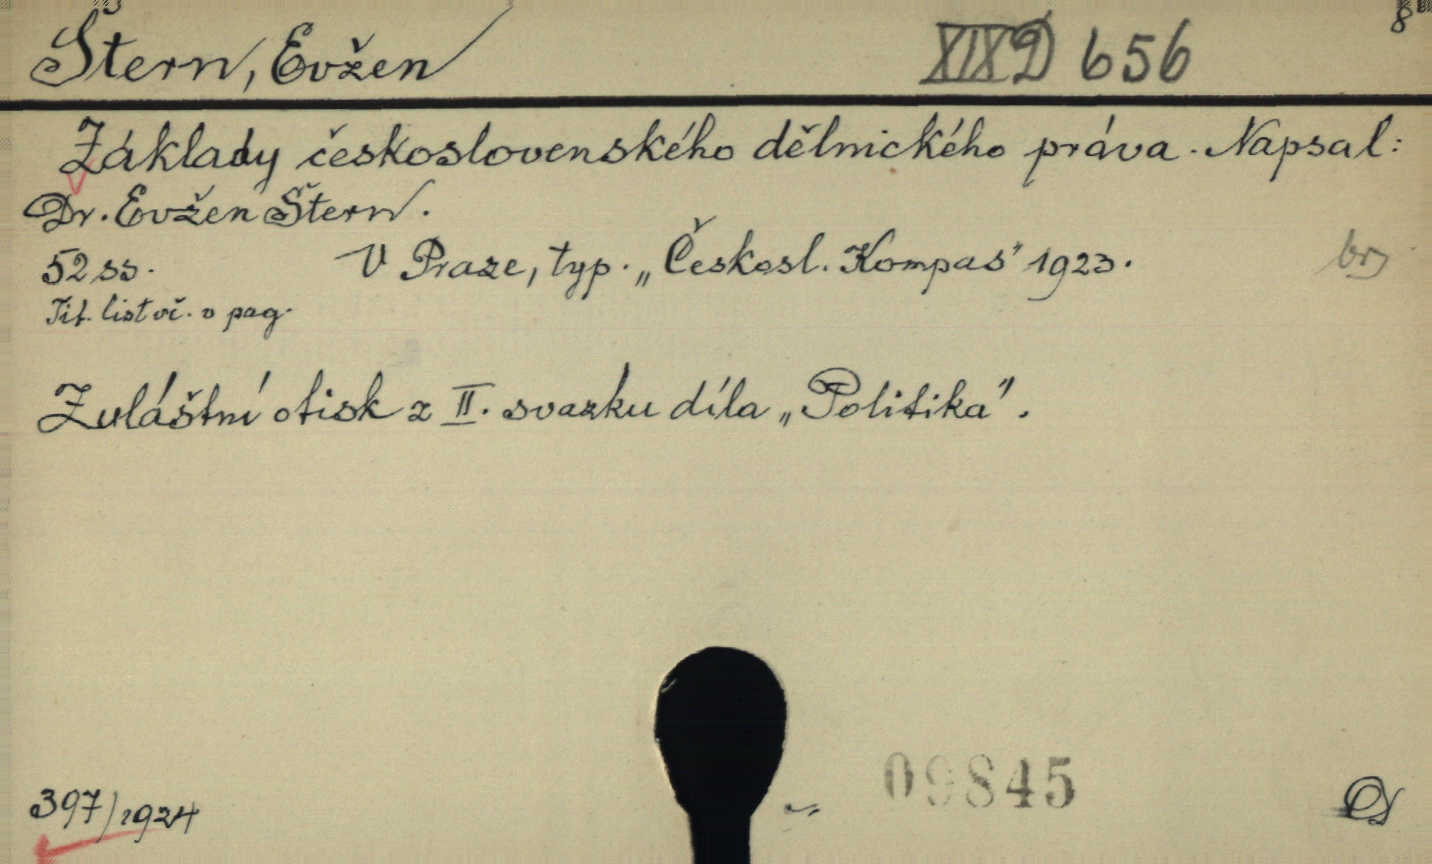 Štern, Evžen XIX D 656 8°
Základy československého dělnického práva. Napsal:
Dr. Evžen Štern.
52 ss. V Praze, typ. „Českosl. Kompas" 1923. brž
Tit. list vč. v pag.
Zvláštní otisk z II. svazku díla „Politika".
397/1924 09845